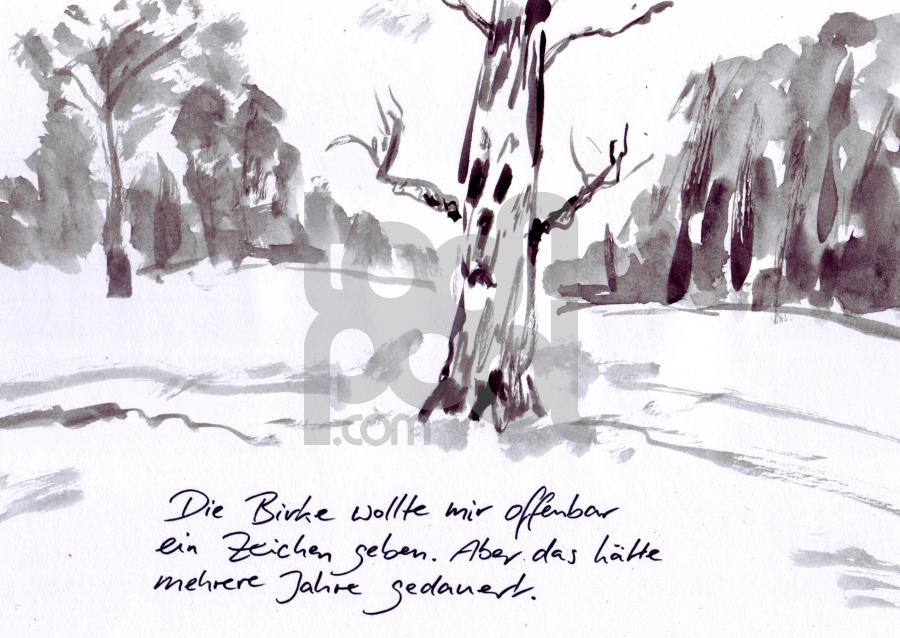 toonpool
.com
Die Birke wollte mir offenbar
ein Zeichen geben. Aber das hätte
mehrere Jahre gedauert.